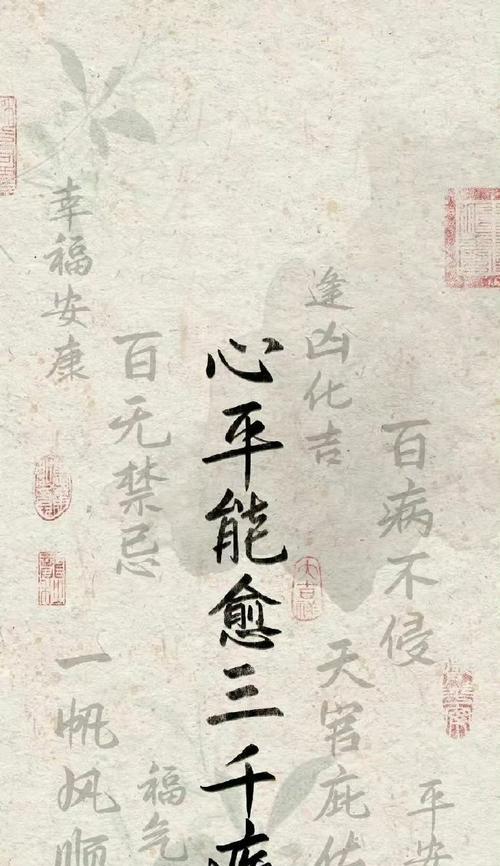 百病不侵
平安
逢凶化吉
天官庇佑
大吉祥
心平能愈三千疾
百无禁忌
福气
幸福安康
一帆风顺